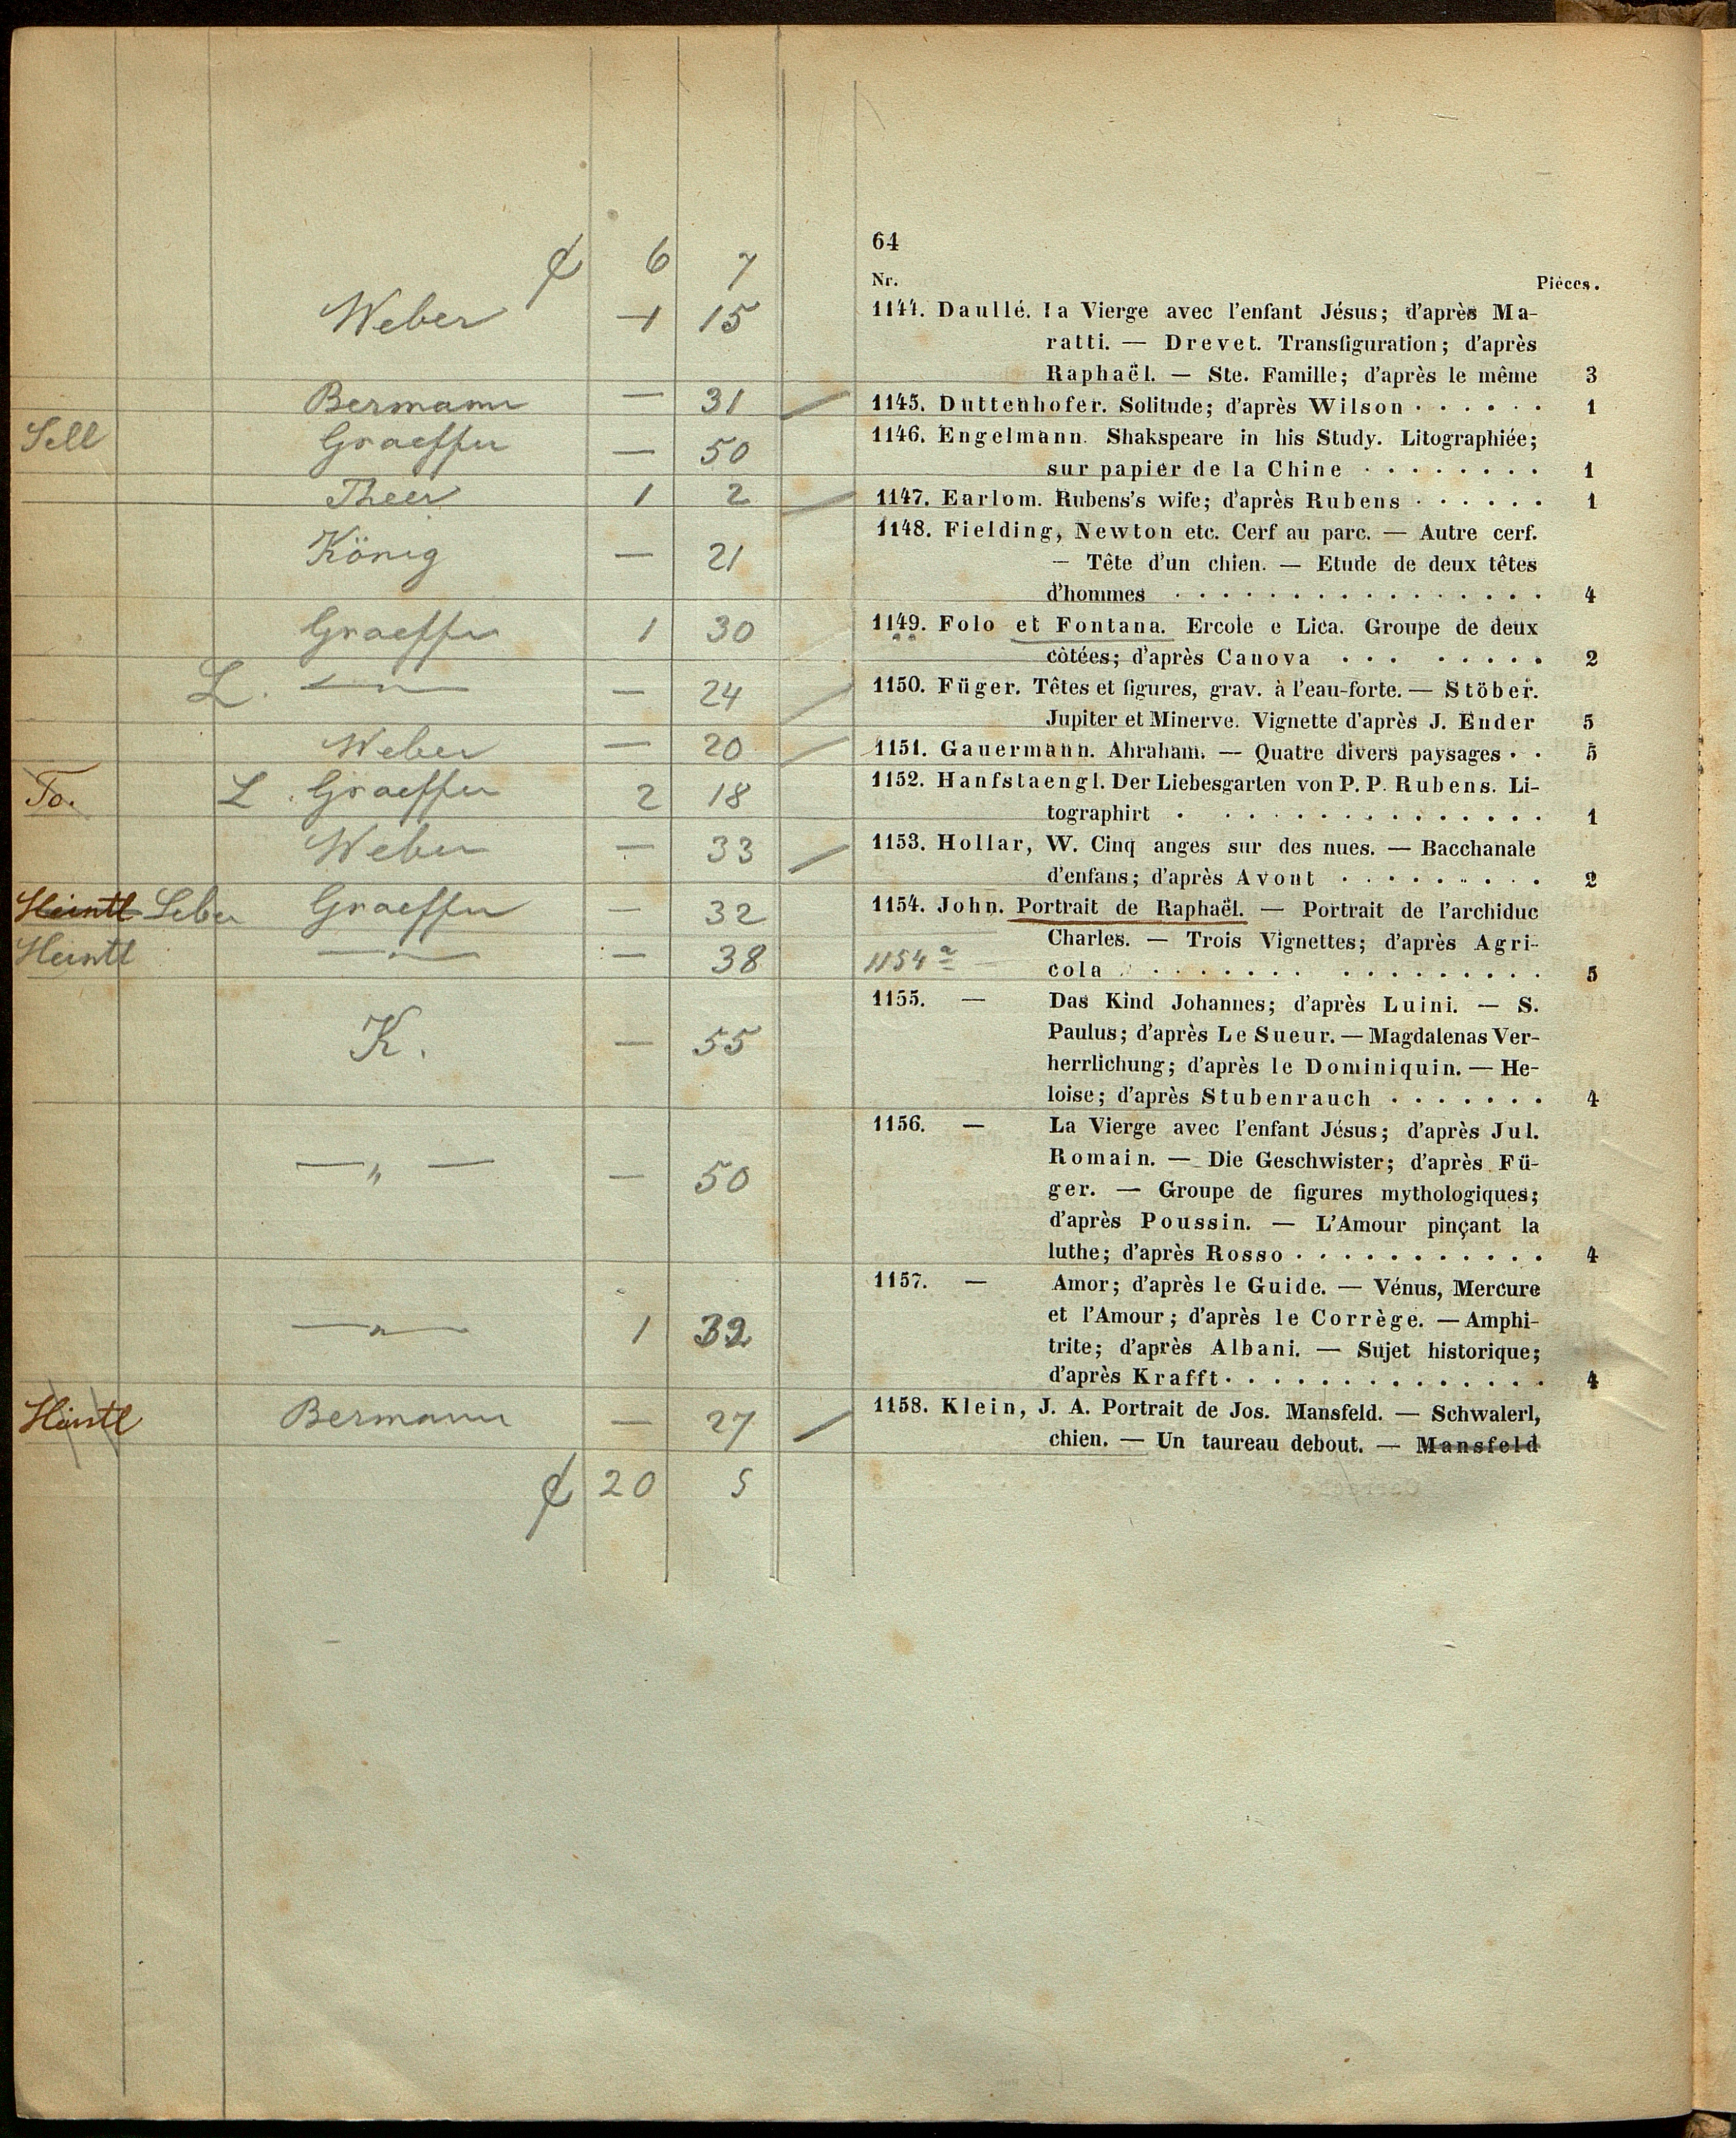 64
₡ 6 7
Nr. Pièces.
Weber 1 15 1144. Daullé. la Vierge avec l'enfant Jésus; d'après Ma-
ratti. — Drevet. Transfiguration; d'après
Raphaël. — Ste. Famille; d'après le même 3
Bermann — 31 1145. Duttenhofer. Solitude; d'après Wilson . . . . . . 1
Sell Graeffer — 50 1146. Engelmann. Shakspeare in his Study. Litographiée;
sur papier de la Chine . . . . . . . . 1
Theer 1 2 1147. Earlom. Rubens's wife; d'après Rubens . . . . . . 1
König — 21 1148. Fielding, Newton etc. Cerf au parc. — Autre cerf.
— Tête d'un chien. — Etude de deux têtes
d'hommes . . . . . . . . . . . . . . . . 4
Graeffer 1 30 1149. Folo et Fontana. Ercole e Lica. Groupe de deux
côtées; d'après Canova . . . . . . . . 2
L. —"— — 24 1150. Füger. Têtes et figures, grav. à l'eau-forte. — Stöber.
Jupiter et Minerve. Vignette d'après J. Ender 5
Weber — 20 1151. Gauermann. Abraham. — Quatre divers paysages . . 5
To. L. Graeffer 2 18 1152. Hanfstaengl. Der Liebesgarten von P. P. Rubens. Li-
tographirt . . . . . . . . . . . . . . 1
Weber — 33 1153. Hollar, W. Cinq anges sur des nues. — Bacchanale
d'enfans; d'après Avont . . . . . . . . . 2
Heintl Graeffer — 32 1154. John. Portrait de Raphaël. — Portrait de l'archiduc
Charles. — Trois Vignettes; d'après Agri-
Heintl —"— — 38 1154a cola . . . . . . . . . . . . . . . . 5
K. — 55 1155. — Das Kind Johannes; d'après Luini. — S.
Paulus; d'après Le Sueur. — Magdalenas Ver-
herrlichung; d'après le Dominiquin. — He-
loise; d'après Stubenrauch . . . . . . . 4
—"— — 50 1156. — La Vierge avec l'enfant Jésus; d'après Jul.
Romain. — Die Geschwister; d'après Fü-
ger. — Groupe de figures mythologiques;
d'après Poussin. — L'Amour pinçant la
luthe; d'après Rosso . . . . . . . . . . . 4
—"— 1 32 1157. — Amor; d'après le Guide. — Vénus, Mercure
et l'Amour; d'après le Corrège. — Amphi-
trite; d'après Albani. — Sujet historique;
d'après Krafft . . . . . . . . . . . . . . 4
Heintl Bermann — 27 1158. Klein, J. A. Portrait de Jos. Mansfeld. — Schwalerl,
chien. — Un taureau debout. — Mansfeld
₡ 20 5